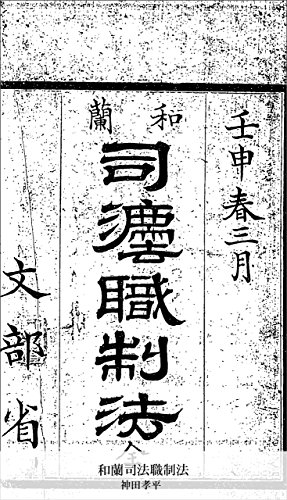 壬申春三月
和蘭
司灋職制法
文部省
和蘭司法職制法
神田孝平